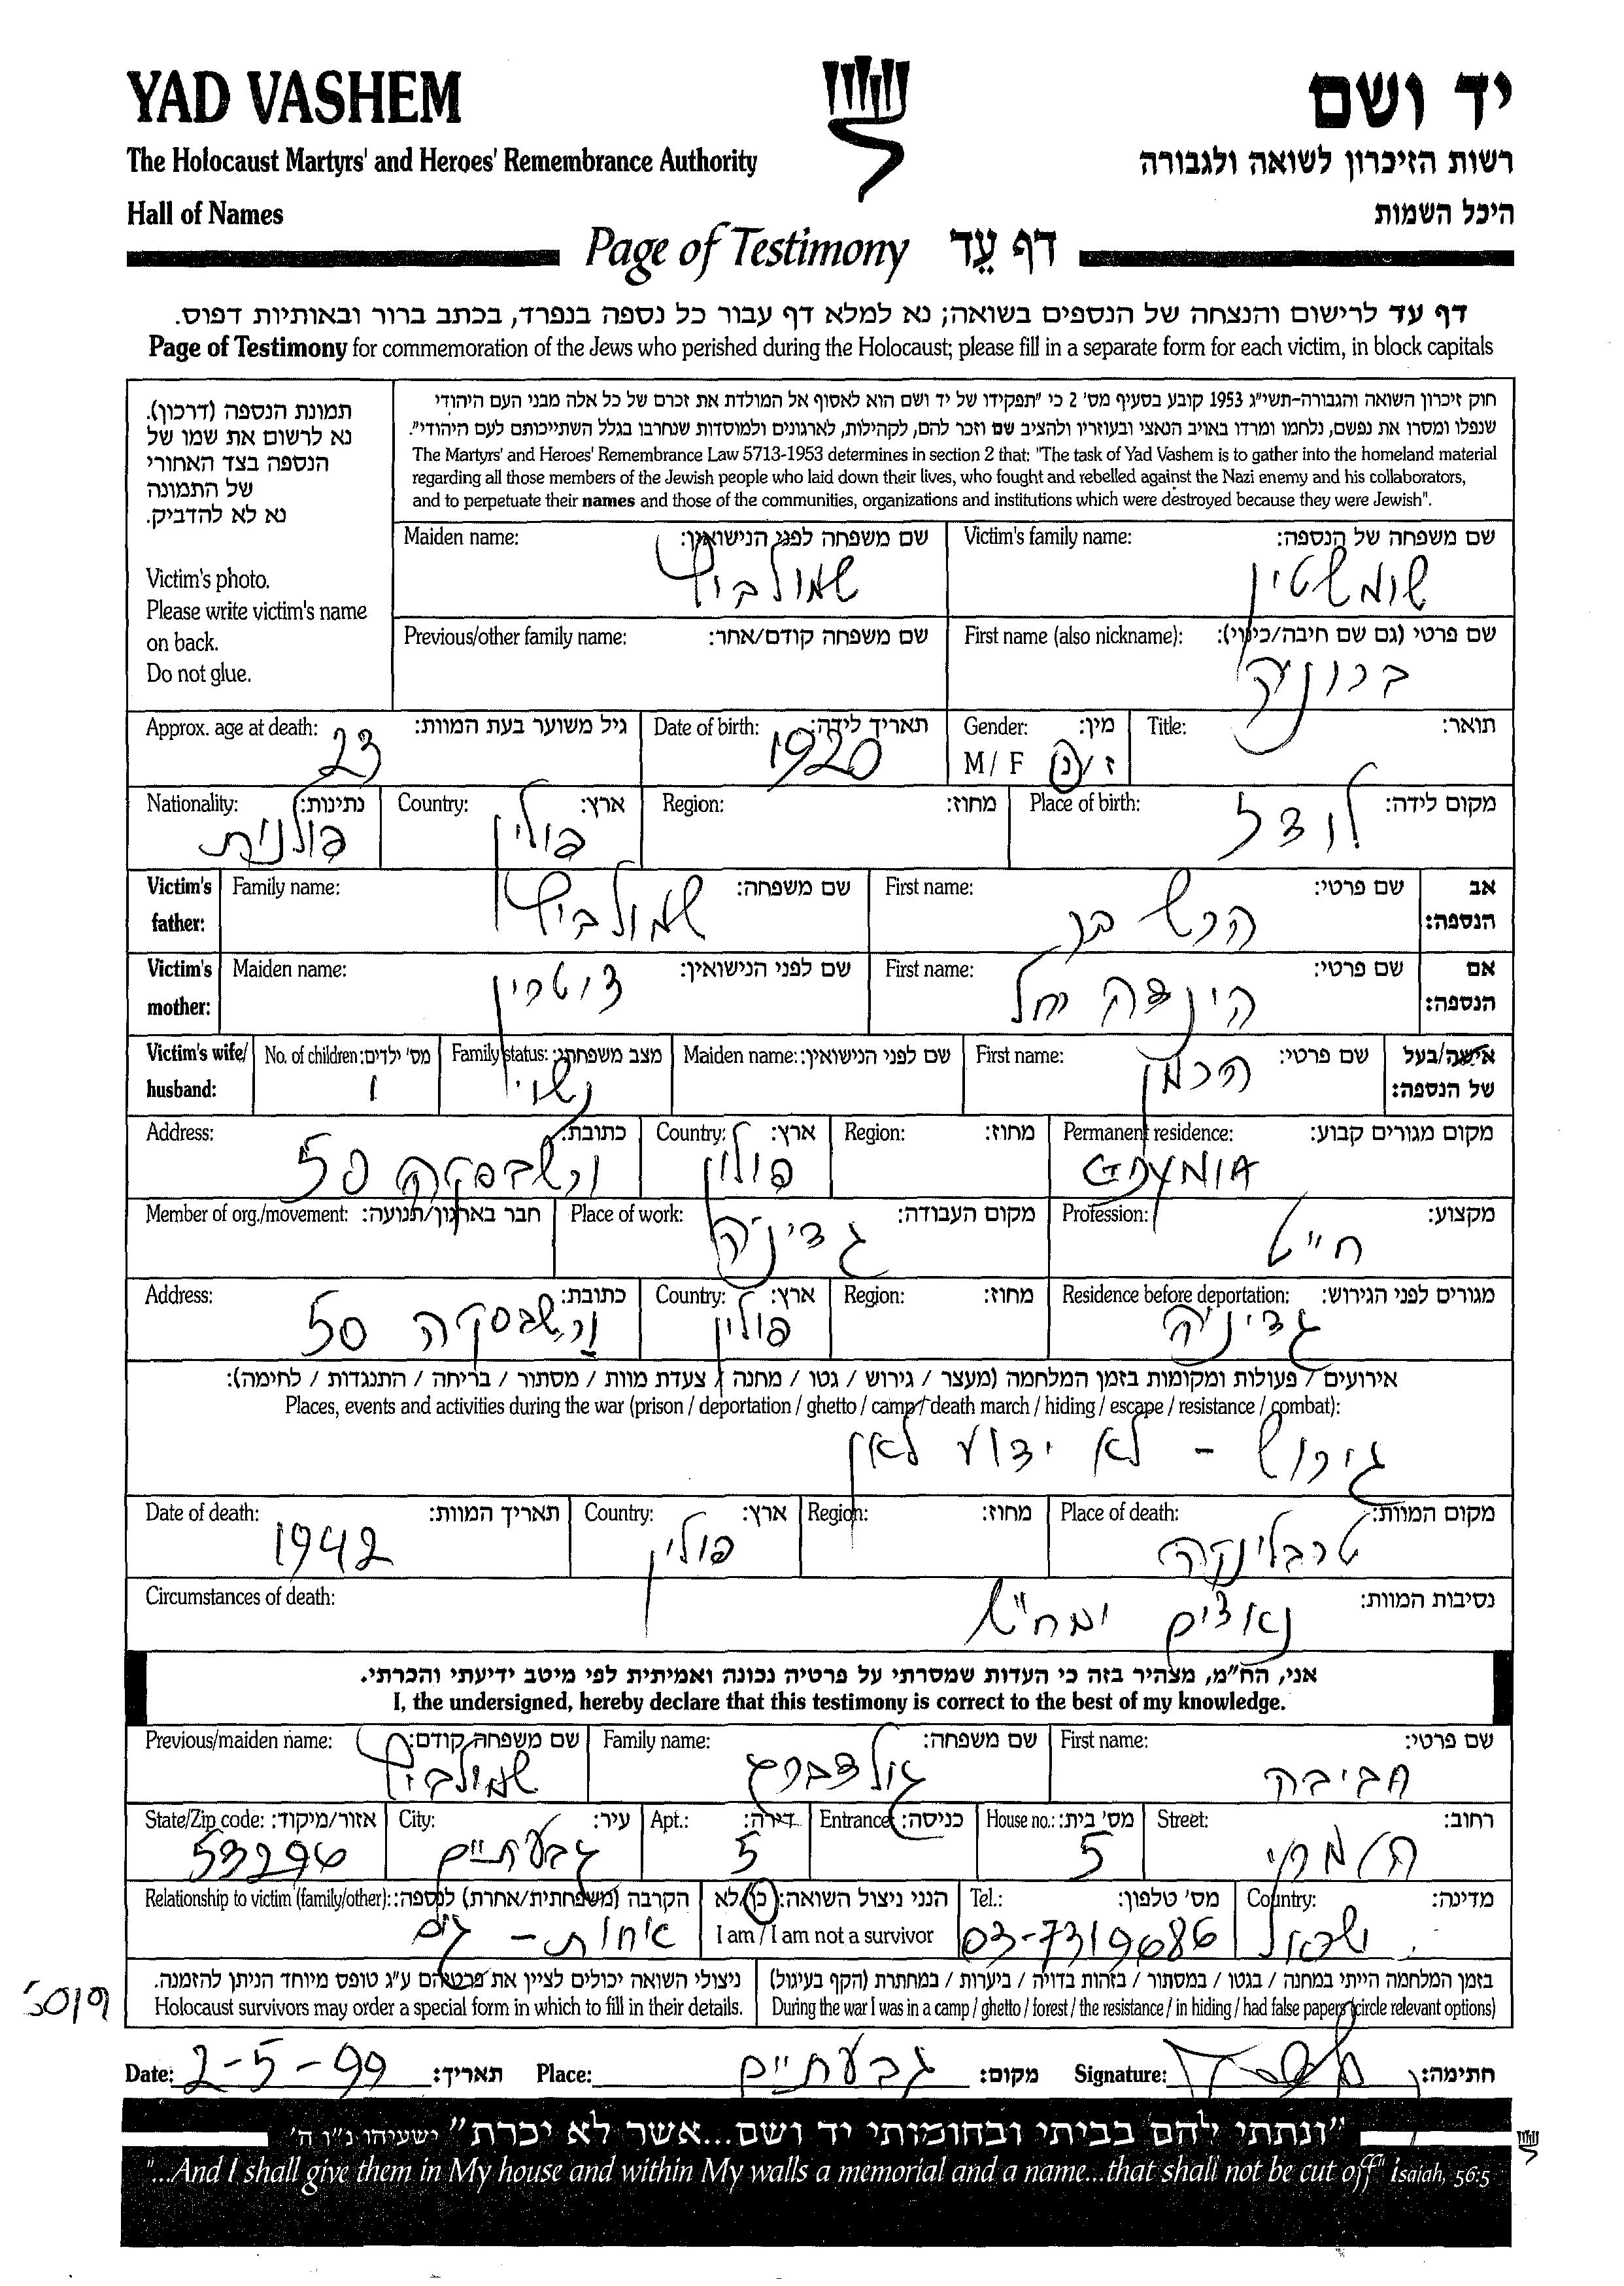 YAD VASHEM
יד ושם
The Holocaust Martyrs' and Heroes' Remembrance Authority
רשות הזיכרון לשואה ולגבורה
Hall of Names
היכל השמות
Page of Testimony דף עֵד
דף עד לרישום והנצחה של הנספים בשואה; נא למלא דף עבור כל נספה בנפרד, בכתב ברור ובאותיות דפוס.
Page of Testimony for commemoration of the Jews who perished during the Holocaust; please fill in a separate form for each victim, in block capitals
תמונת הנספה (דרכון).
נא לרשום את שמו של
הנספה בצד האחורי
של התמונה
נא לא להדביק.
Victim's photo.
Please write victim's name
on back.
Do not glue.
חוק זיכרון השואה והגבורה-תשי"ג 1953 קובע בסעיף מס' 2 כי "תפקידו של יד ושם הוא לאסוף אל המולדת את זכרם של כל אלה מבני העם היהודי
שנפלו ומסרו את נפשם, נלחמו ומרדו באויב הנאצי ובעוזריו ולהציב שם וזכר להם, לקהילות, לארגונים ולמוסדות שנחרבו בגלל השתייכותם לעם היהודי".
The Martyrs' and Heroes' Remembrance Law 5713-1953 determines in section 2 that: "The task of Yad Vashem is to gather into the homeland material
regarding all those members of the Jewish people who laid down their lives, who fought and rebelled against the Nazi enemy and his collaborators,
and to perpetuate their names and those of the communities, organizations and institutions which were destroyed because they were Jewish".
Victim's family name: שם משפחה של הנספה:
שומשטין
Maiden name: שם משפחה לפני הנישואין:
שמולביץ
First name (also nickname): שם פרטי (גם שם חיבה/כינוי):
ברוניה
Previous/other family name: שם משפחה קודם/אחר:
Title: תואר:
Gender: מין:
M / F ז / נ
Date of birth: תאריך לידה:
1920
Approx. age at death: גיל משוער בעת המוות:
23
Place of birth: מקום לידה:
לודז
Region: מחוז:
Country: ארץ:
פולין
Nationality: נתינות:
פולנית
Victim's father: אב הנספה:
First name: שם פרטי:
הרש בר
Family name: שם משפחה:
שמולביץ
Victim's mother: אם הנספה:
First name: שם פרטי:
הינדה
Maiden name: שם לפני הנישואין:
Victim's wife/ husband: אישה/בעל של הנספה:
First name: שם פרטי:
הרמן
Maiden name: שם לפני הנישואין:
Family status: מצב משפחתי:
נשוי
No. of children: מס' ילדים:
1
Permanent residence: מקום מגורים קבוע:
GDYNIA
Region: מחוז:
Country: ארץ:
פולין
Address: כתובת:
50
Profession: מקצוע:
חייט
Place of work: מקום העבודה:
גדיניה
Member of org./movement: חבר בארגון/תנועה:
Residence before deportation: מגורים לפני הגירוש:
גדיניה
Region: מחוז:
Country: ארץ:
פולין
Address: כתובת:
50
אירועים / פעולות ומקומות בזמן המלחמה (מעצר / גירוש / גטו / מחנה / צעדת מוות / מסתור / בריחה / התנגדות / לחימה):
Places, events and activities during the war (prison / deportation / ghetto / camp / death march / hiding / escape / resistance / combat):
גירוש - לא ידוע לאן
Place of death: מקום המוות:
טרבלינקה
Region: מחוז:
Country: ארץ:
פולין
Date of death: תאריך המוות:
1942
Circumstances of death: נסיבות המוות:
נאצים ימח"ש
אני, הח"מ, מצהיר בזה כי העדות שמסרתי על פרטיה נכונה ואמיתית לפי מיטב ידיעתי והכרתי.
I, the undersigned, hereby declare that this testimony is correct to the best of my knowledge.
First name: שם פרטי:
חביבה
Family name: שם משפחה:
גולדברג
Previous/maiden name: שם משפחה קודם:
שמולביץ
Street: רחוב:
House no.: מס' בית:
5
Entrance: כניסה:
Apt.: דירה:
5
City: עיר:
גבעתיים
State/Zip code: אזור/מיקוד:
53296
Country: מדינה:
ישראל
Tel.: מס' טלפון:
03-7319686
הנני ניצול השואה: כן/לא
I am / I am not a survivor
Relationship to victim (family/other): הקרבה (משפחתית/אחרת) לנספה:
אחות - גיס
בזמן המלחמה הייתי במחנה / בגטו / במסתור / בזהות בדויה / ביערות / במחתרת (הקף בעיגול)
During the war I was in a camp / ghetto / forest / the resistance / in hiding / had false papers (circle relevant options)
ניצולי השואה יכולים לציין את פרטיהם ע"ג טופס מיוחד הניתן להזמנה.
Holocaust survivors may order a special form in which to fill in their details.
Date: 2-5-99 תאריך:
Place: גבעתיים מקום:
Signature: חתימה:
"ונתתי להם בביתי ובחומותי יד ושם...אשר לא יכרת" ישעיהו נ"ו ה'
"...And I shall give them in My house and within My walls a memorial and a name...that shall not be cut off" isaiah, 56:5